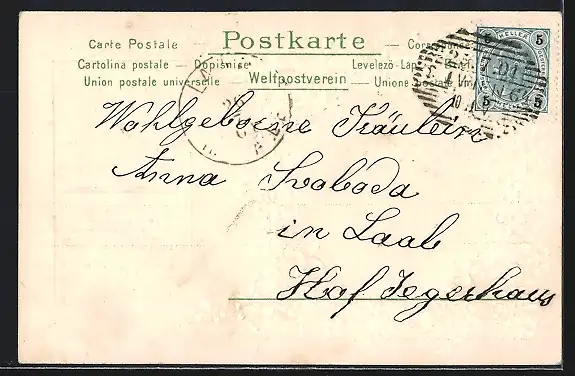 Postkarte
Carte Postale — Correspondenz
Cartolina postale — Dopisnice Levelező-Lap
Union postale universelle — Weltpostverein — Unione postale
5 HELLER 5
5 5
Wohlgeborne Fräulein
Anna Svaboda
in Laab
Hof Jegerhaus